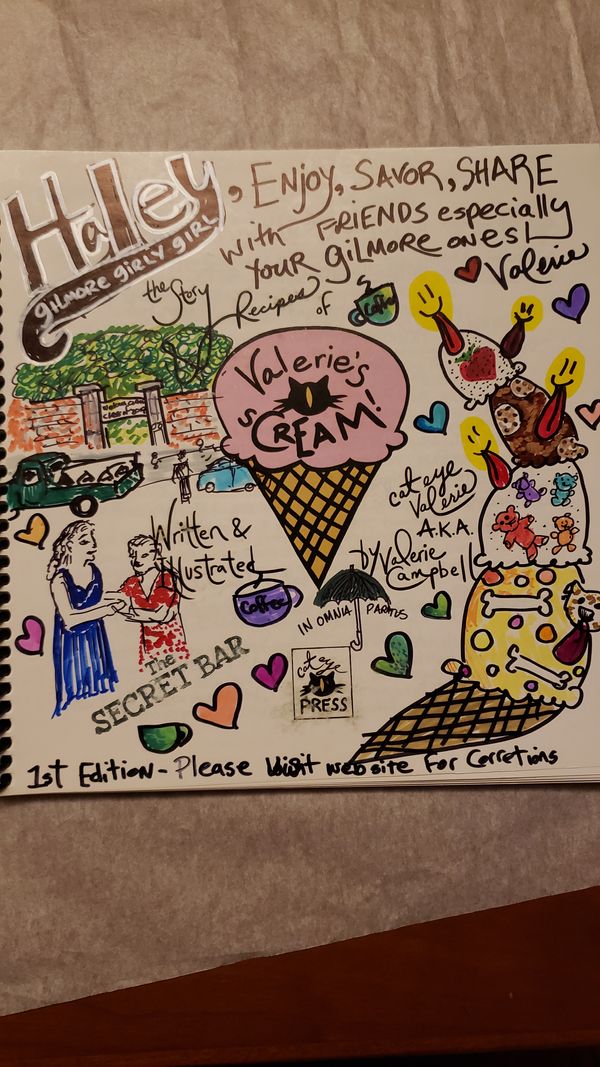 Haley, Enjoy, Savor, SHARE
gilmore girly girl
with FRIENDS especially
your gilmore ones!
Valerie
the Story
&
Recipes
of
Coffee
Valerie's
sCREAM!
cat eye
Valerie
A.K.A.
Written &
Illustrated
by Valerie
Campbell
Coffee
IN OMNIA PARATUS
The
SECRET BAR
cat eye
PRESS
1st Edition - Please visit website for Corretions